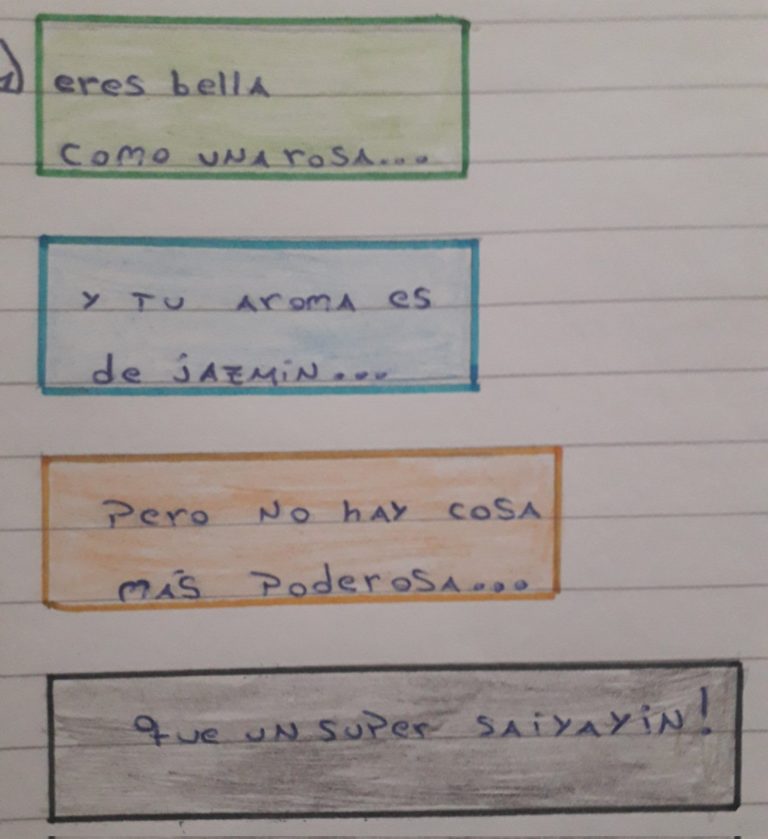 1) eres bella
como una rosa...
y tu aroma es
de jazmin...
Pero no hay cosa
más poderosa...
que un super saiyayin!